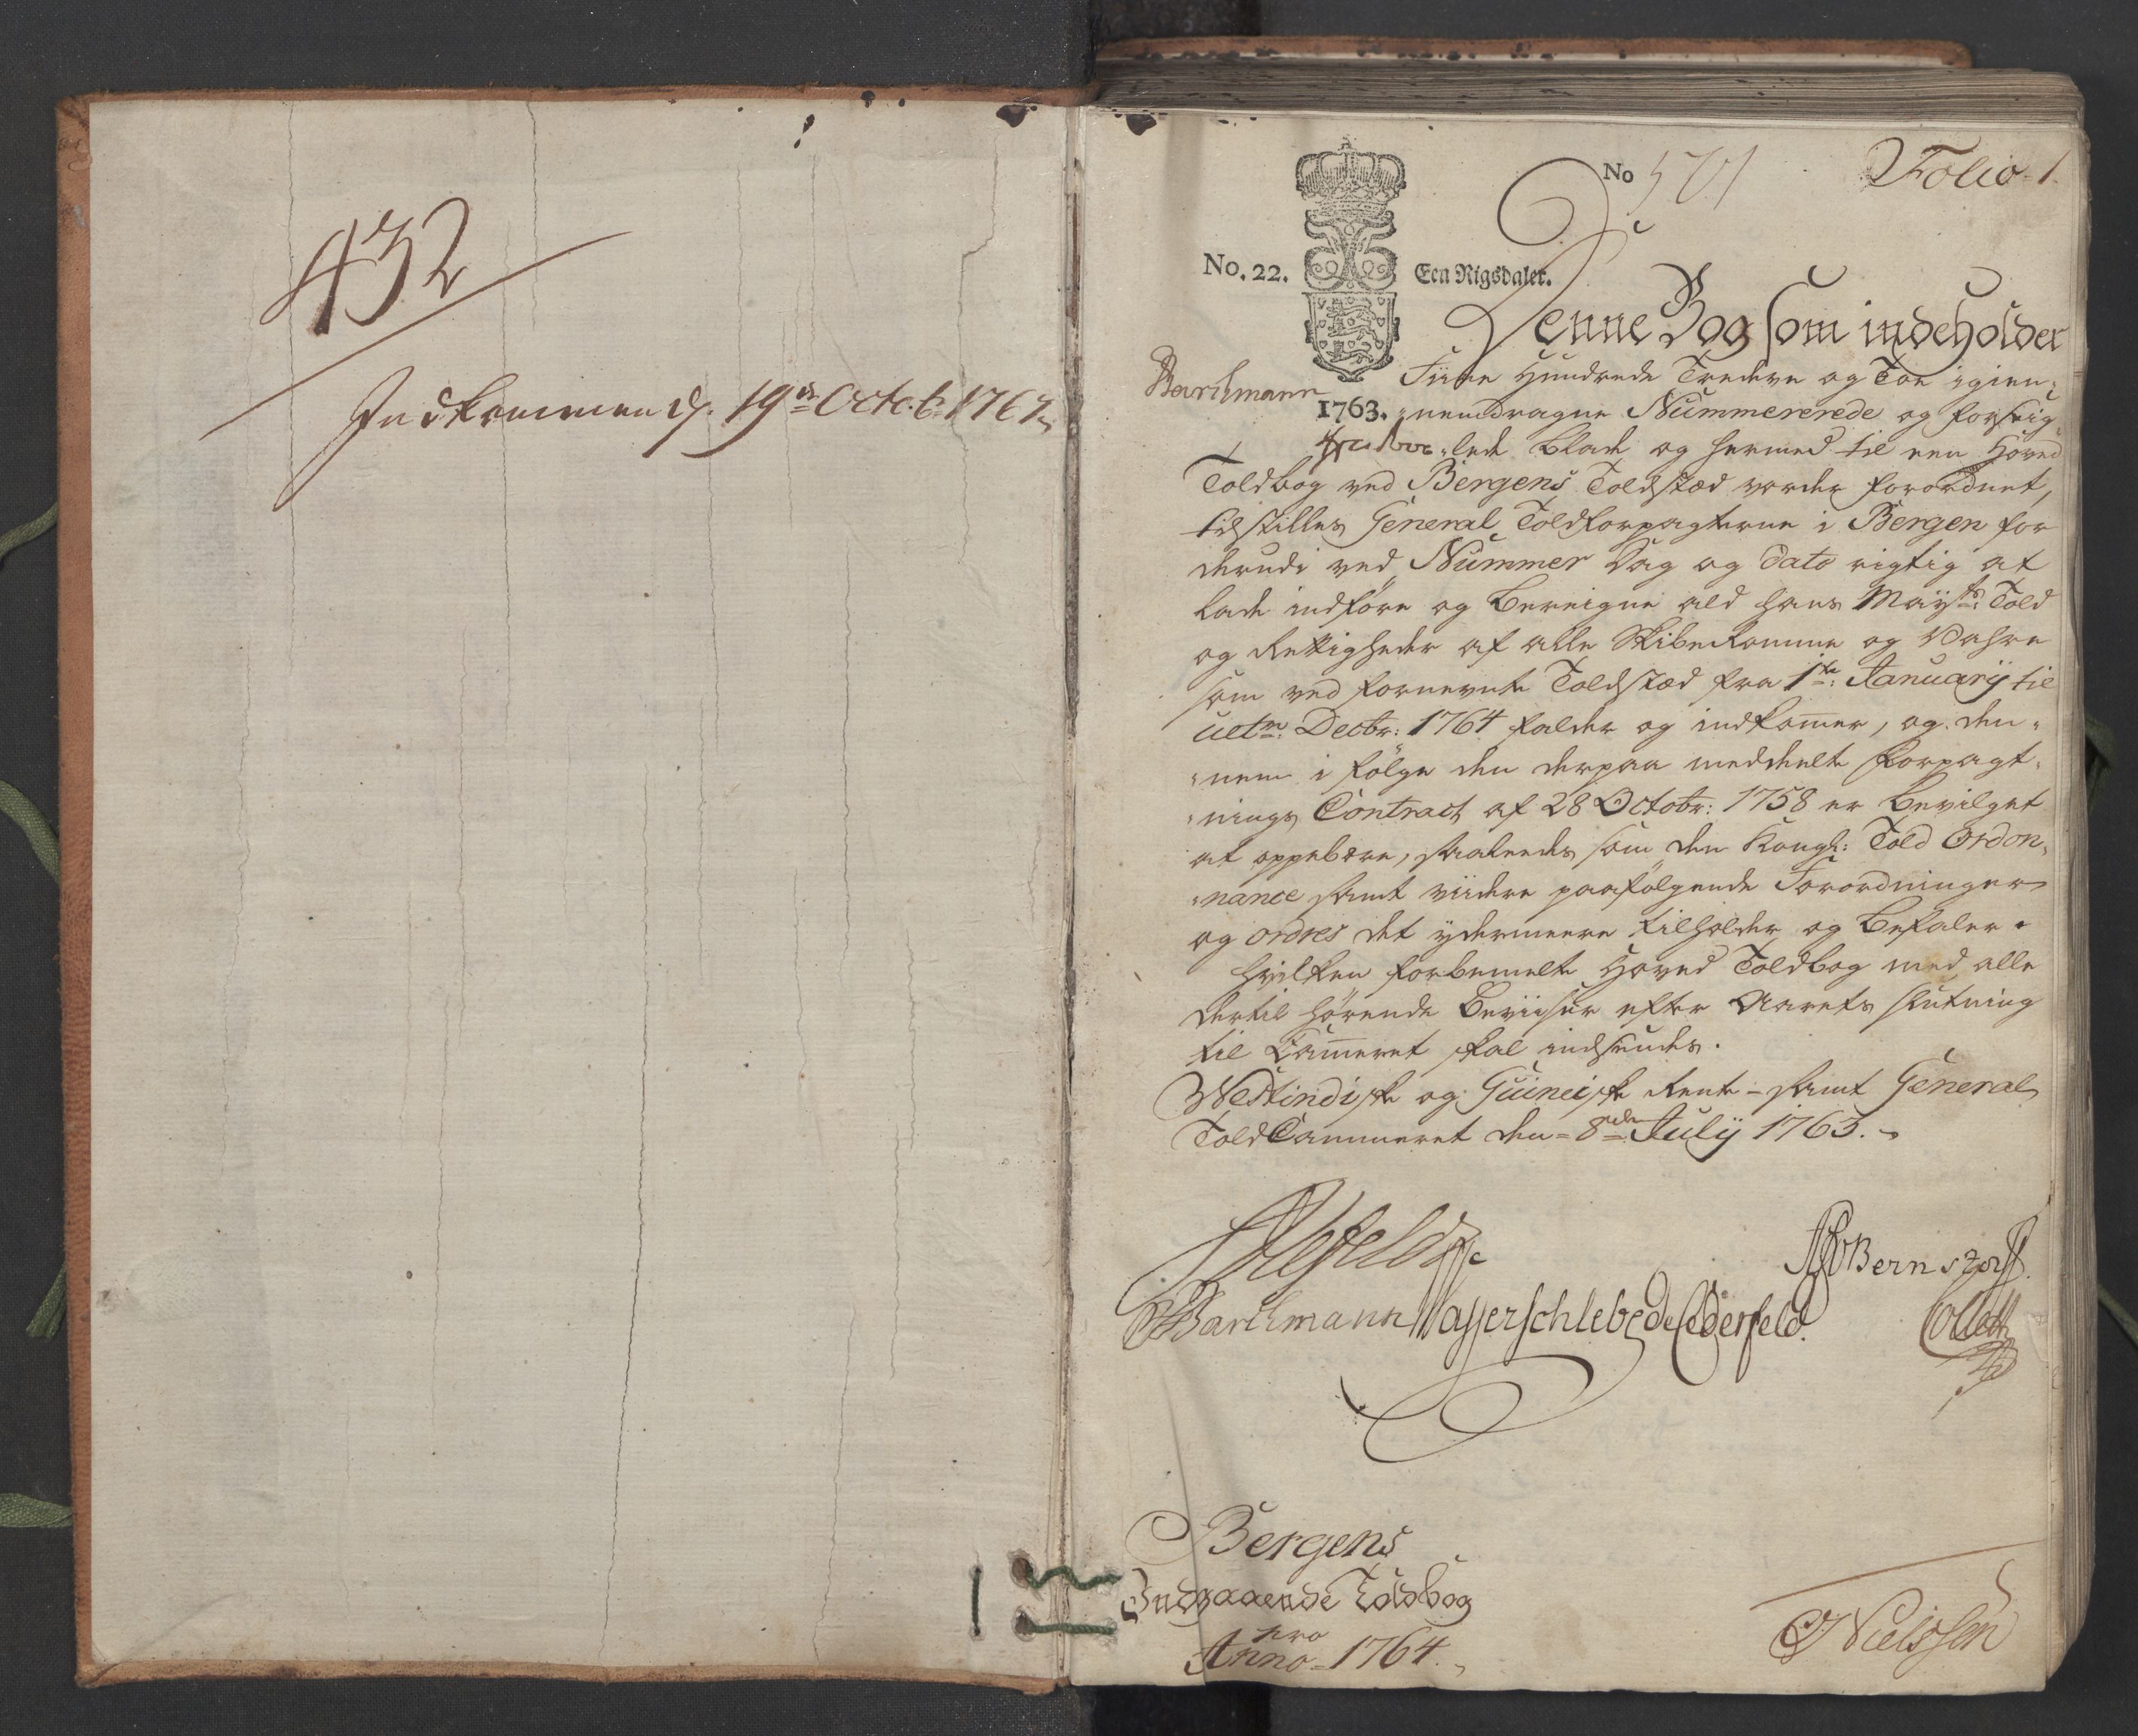 432
Indkommen d. 19de Octob. 1767
No 5701
Folio 1.
No. 22.
Een Rigsdaler.
Denne Bog som indeholder
Barchmann
Fiire Hundrede Tredeve og Toe igien-
1763.
-nemdragne Nummererede og forseig-
-lede Blade og hermed til een Hoved
Toldbog ved Bergens Toldstæd vorder forordnet,
tilstilles General Toldforpagterne i Bergen for
derudi ved Nummer Dag og Dato rigtig at
lade indføre og beregne ald hans Mayts: Told
og Rettigheder af alle Skibe komme og Vahre
som ved fornevnte Toldstæd fra 1te: January til
ult: Decbr: 1764 falder og indkom̄er, og den-
-nem i følge den derpaa meddeelte Forpagt-
-nings Contract af 28 Octobr: 1758 er bevilget
at oppebære, saaleedes som den Kongl: Told Ordon-
-nance samt viidere paafølgende Forordninger
og ordres det ydermeere tilholder og befaler.
hvilken forbemelte Hoved Toldbog med alle
dertil hørende beviiser efter Aarets slutning
til Cam̄eret skal indsendes.
Westindiske og Guineiske Rente- samt General
ToldCammeret den 8de July 1763.
Ahlefeldt
JHE Bernstorff.
Barchmann
Wasserschlebe
de Cederfeld.
Collett
Bergens
Indgaaende Toldbog
pro
Anno 1764.
Nielssen